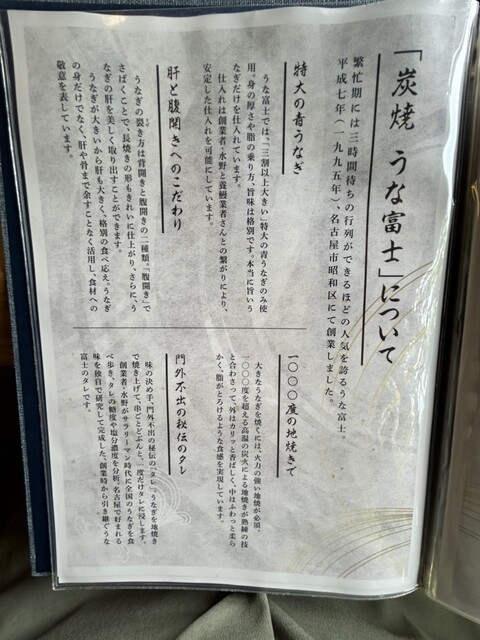 「炭焼 うな富士」について
繁忙期には三時間待ちの行列ができるほどの人気を誇るうな富士。
平成七年（一九九五年）、名古屋市昭和区にて創業しました。
特大の青うなぎ
うな富士では、「三割以上大きい」特大の青うなぎのみ使
用。身の厚さや脂の乗り方、旨味は格別です。本当に旨いう
なぎだけを仕入れています。
仕入れは創業者・水野と養鰻業者さんとの繋がりにより、
安定した仕入れを可能にしています。
肝と腹開きへのこだわり
うなぎの裂き方は背開きと腹開きの二種類。「腹開き」で
さばくことで、長焼きの形もきれいに仕上がり、さらに、う
なぎの肝を美しく取り出すことができます。
うなぎが大きいから肝も大きく、格別の食べ応え。うなぎ
の身だけでなく、肝や骨まで余すことなく活用し、食材への
敬意を表しています。
一〇〇〇度の地焼きで
大きなうなぎを焼くには、火力の強い地焼が必須。
一〇〇〇度を超える高温の炭火による地焼きが熟練の技
と合わさって、外はカリッと香ばしく、中はふわっと柔ら
かく、脂がとろけるような食感を実現しています。
門外不出の秘伝のタレ
味の決め手、門外不出の秘伝の「タレ」。うなぎを地焼き
で焼き上げて、串ごとどぶんと、一度だけタレに浸します。
創業者・水野がサラリーマン時代に全国のうなぎを食
べ歩き、タレの糖度や塩分濃度を分析。名古屋で好まれる
味を独自で研究して完成した、創業時から引き継ぐうな
富士のタレです。